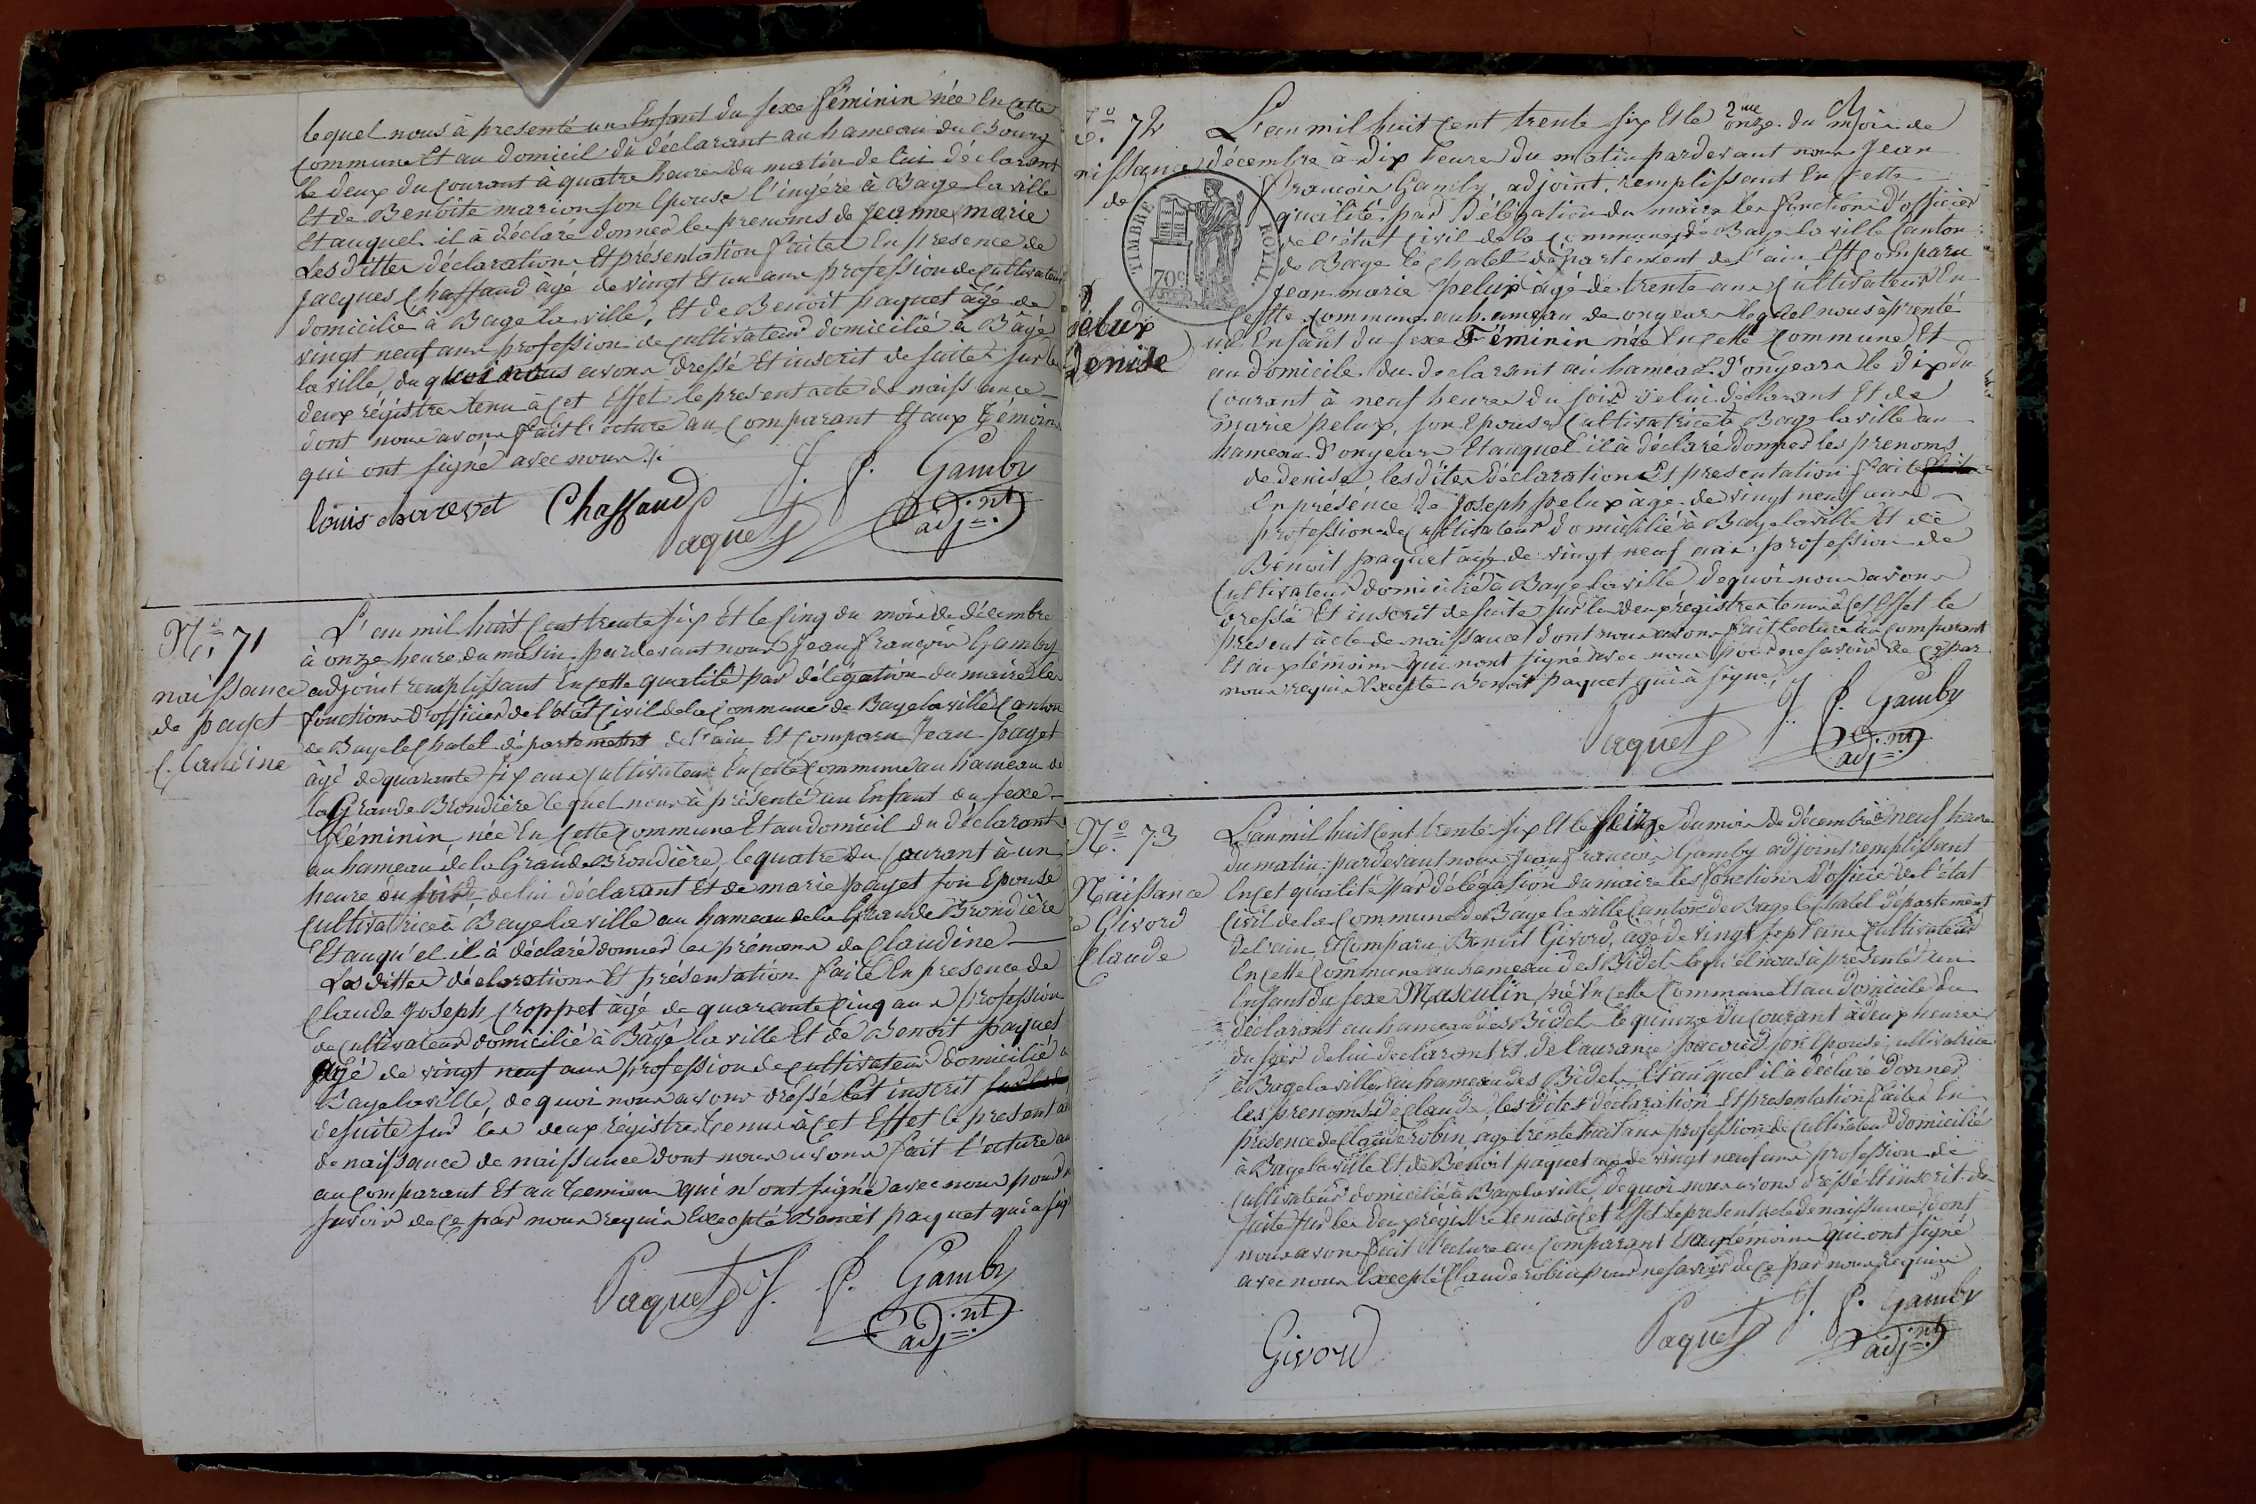 lequel nous à presenté un Enfant du sexe féminin née En Cette
Commune Et au domicil du déclarant au hameau du Bourg
le deux du Courant à quatre heure du matin de lui déclarant
Et de Benoite marion son Epouse l'ingére à Bage la ville
Et auquel il à déclaré donner les prenoms de Jeanne marie
Les dittes déclaration Et présentation faite En presence de
Jacques Chaffaud âgé de vingt Et un ans profession de cultivateur
domicilié à Bage la ville, Et de Benoit paquet âgé de
vingt neuf ans profession de cultivateur domicilié à Bâgé
la ville du quoi nous avons dressé Et inscrit de suite sur les
deux régistre tenu à cet Effet le present acte de naissance
dont nous avons fait l'ecture au Comparant Et aux témoins
qui ont signé avec nous
louis charevet Chaffaud J. f. Gamby
Paquet adj.nt
N.o 71
naissance
de payet
Claudine
L'an mil huit Cent trente six Et le Cinq du mois de décembre
à onze heure du matin pardevant nous Jean françois Gamby
adjoint remplissant En cette qualité par délégation du maire les
fonctions d'officier de l'état Civil de la Commune de Bage la ville Canton
de Bage le Chatel département de l'ain Et Comparu Jean payet
âgé de quarante six ans Cultivateur En cette Commune au hameau de
la Grande Brondière lequel nous à présenté un Enfant du sexe
féminin née En Cette Commune Et au domicil du déclarant
au hameau de la Grande Brondière, le quatre du Courant à un
heure du soir de lui déclarant Et de marie payet son Epouse
Cultivatrice à Bage la ville au hameau de la Grande Brondière
Et auqu'el il à déclaré donner les prénoms de Claudine
Les dittes déclaration Et présentation faite En presence de
Claude Joseph Croppet âgé de quarante Cinq ans profession
de Cultivateur domicilié à Bâgé la ville Et de Benoit paquet
âgé de vingt neuf ans profession de cultivateur domicilié à
Bage la ville, de quoi nous avons dressé Et inscrit
de suite sur les deux régistre tenus à cet Effet le present acte
de naissance de naissance dont nous avons fait l'ecture au
au Comparant Et au temoins qui n'ont signé avec nous pour ne
savoir de Ce par nous requis Excepté Benoit paquet qui a signé
Paquet J. f. Gamby
adj.nt
N.o 72
naissance
de
pelux
Denise
TIMBRE ROYAL
70 c
L'an mil huit Cent trente six Et le onze du mois de
décembre à dix heure du matin pardevant nous Jean
françois Gamby, adjoint, remplissant En Cette
qualité, par Délégation du maire les fonctions d'officier
de l'état Civil de la Commune de Bage la ville Canton
de Bage le Chatel département de l'ain Est Comparu
Jean marie pelux âgé de trente ans Cultivateur En
Cette Commune au hameau de ongear lequel nous à prenté
un Enfant du sexe Féminin née En Cette Commune Et
au domicile du declarant au hameau d'ongear le dix du
Courant à neuf heure du soir de lui déclarant Et de
marie pelux, son Epouse Cultivatrice à Bage la ville au
hameau d'ongear Et auquel il à déclaré donner les prenoms
de denise les dites déclaration Et presentation faite
En présence de Joseph pelux âgé de vingt neuf ans
profession de Cultivateur domicilié à Bage la ville Et de
Benoit paquet âgé de vingt neuf ans profession de
Cultivateur domicilié à Bage la ville de quoi nous avons
dressé Et inscrit de suite sur les deux régistre tenu à Cet Effet le
present acte de naissance dont nous avons fait lecture au Comparant
Et aux témoins qui n'ont signé avec nous pour ne savoir de Ce par
nous requis Excepté Benoit paquet qui à signé
Paquet J. f. Gamby
adj.nt
N.o 73
Naissance
de Givord
Claude
L'an mil huit Cent trente six Et le seize du mois de décembre à neuf heure
du matin pardevant nous Jean françois Gamby adjoint remplissant
En Cet qualité par délégation du maire les fonctions d'officier de l'état
Civil de la Commune de Bage la ville Canton de Bage le Chatel département
de l'ain, Et Comparu Benoit Givord, âgé de vingt sept ans Cultivateur
En Cette Commune au hameau des Bidet lequ'el nous à présenté un
Enfant du sexe Masculin né En Cette Commune Et au domicile du
déclarant au hameau des Bidet le quinze du Courant à deux heures
du soir de lui declarant Et de Laurence son Epouse Cultivatrice
à Bage la ville au hameau des Bidet Et au quel il à déclaré donner
les prenoms de Claude, les dites déclaration Et presentation faites En
presence de Claude robin âgé trente huit ans profession de Cultivateur domicilié
à Bage la ville Et de Benoit paquet âgé de vingt neuf ans profession de
Cultivateur domicilié à Bage la ville, de quoi nous avons dressé Et inscrit de
suite sur les deux régistre tenus à Cet Effet le present acte de naissance dont
nous avons fait l'ecture au Comparant Et aux témoins qui ont signé
avec nous Excepté Claude robin pour ne savoir de Ce par nous requis
Givord Paquet J. f. Gamby
adj.nt